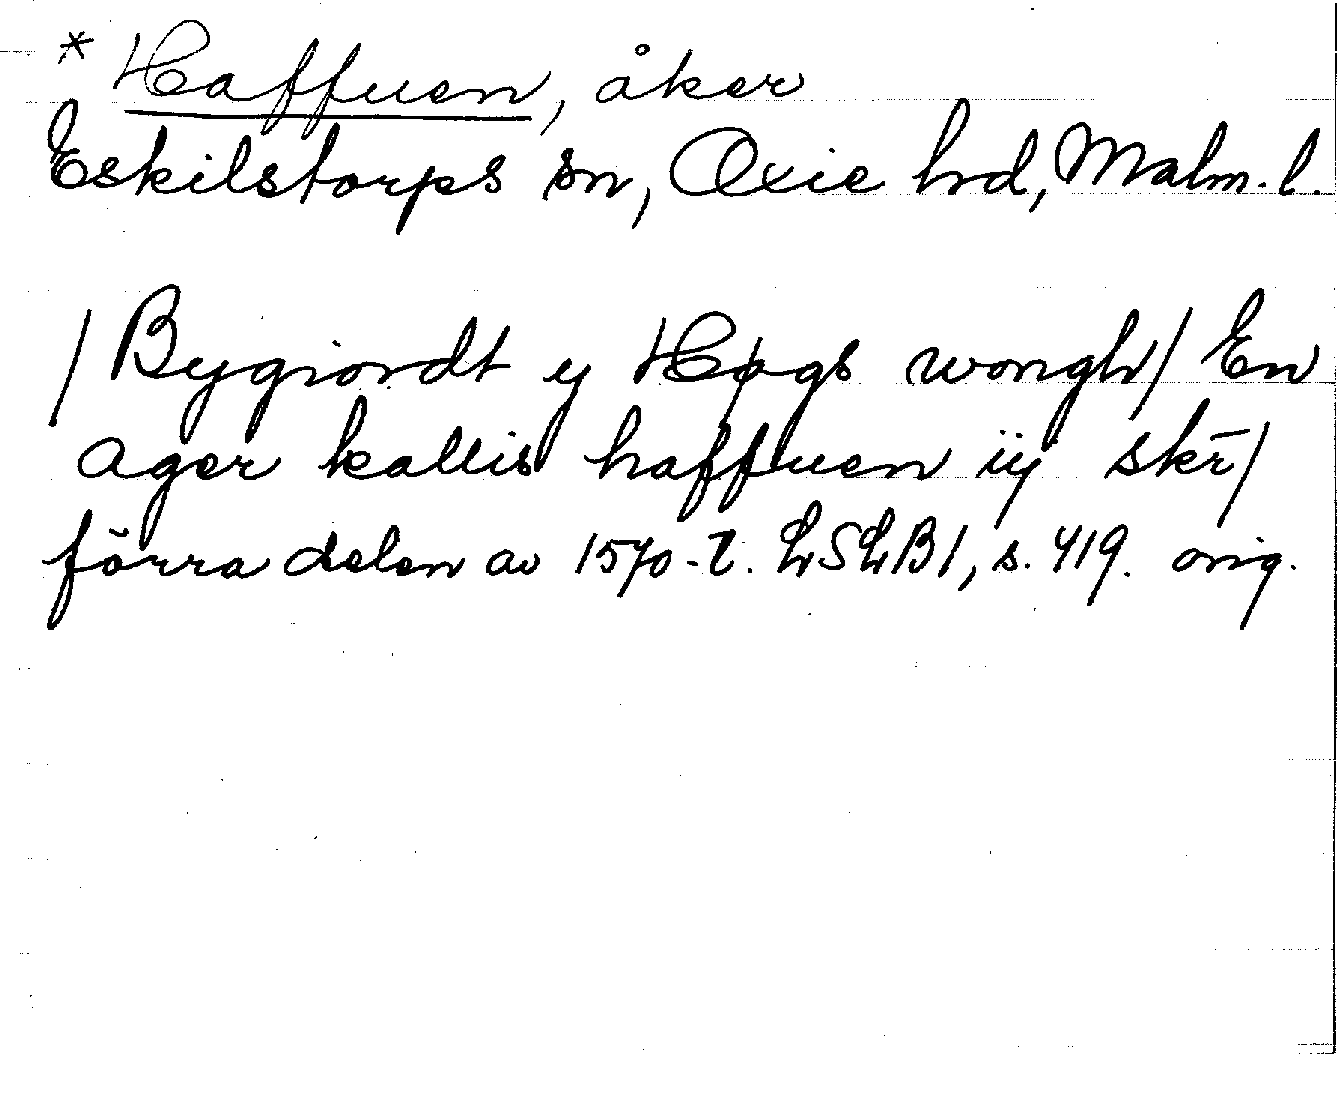 * Haffuen, åker
Eskilstorps sn, Oxie hrd, Malm. l.
/ Bygiordt y Høgs wongh/ En
ager kallis haffuen iij skr̄/
förra delen av 1570-t. LSLB1, s. 419. orig.